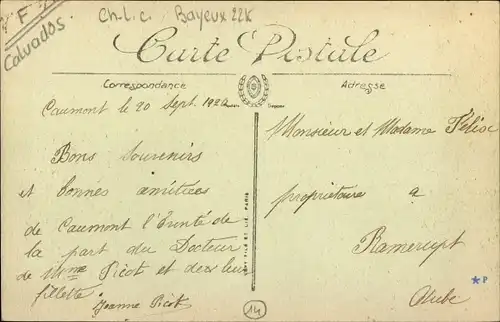 F
Calvados.
Ch-l.c. Bayeux 22K
Carte Postale
Correspondance
Adresse
Caumont le 20 Sept. 1920
Bons souvenirs
et bonnes amitiées
de Caumont l'Eventé de
la part du Docteur
de Mme Picot et de leur
fillette.
Jeanne Picot
Monsieur et Madame Félix
propriétaire a
Ramerupt
Aube
* P
14